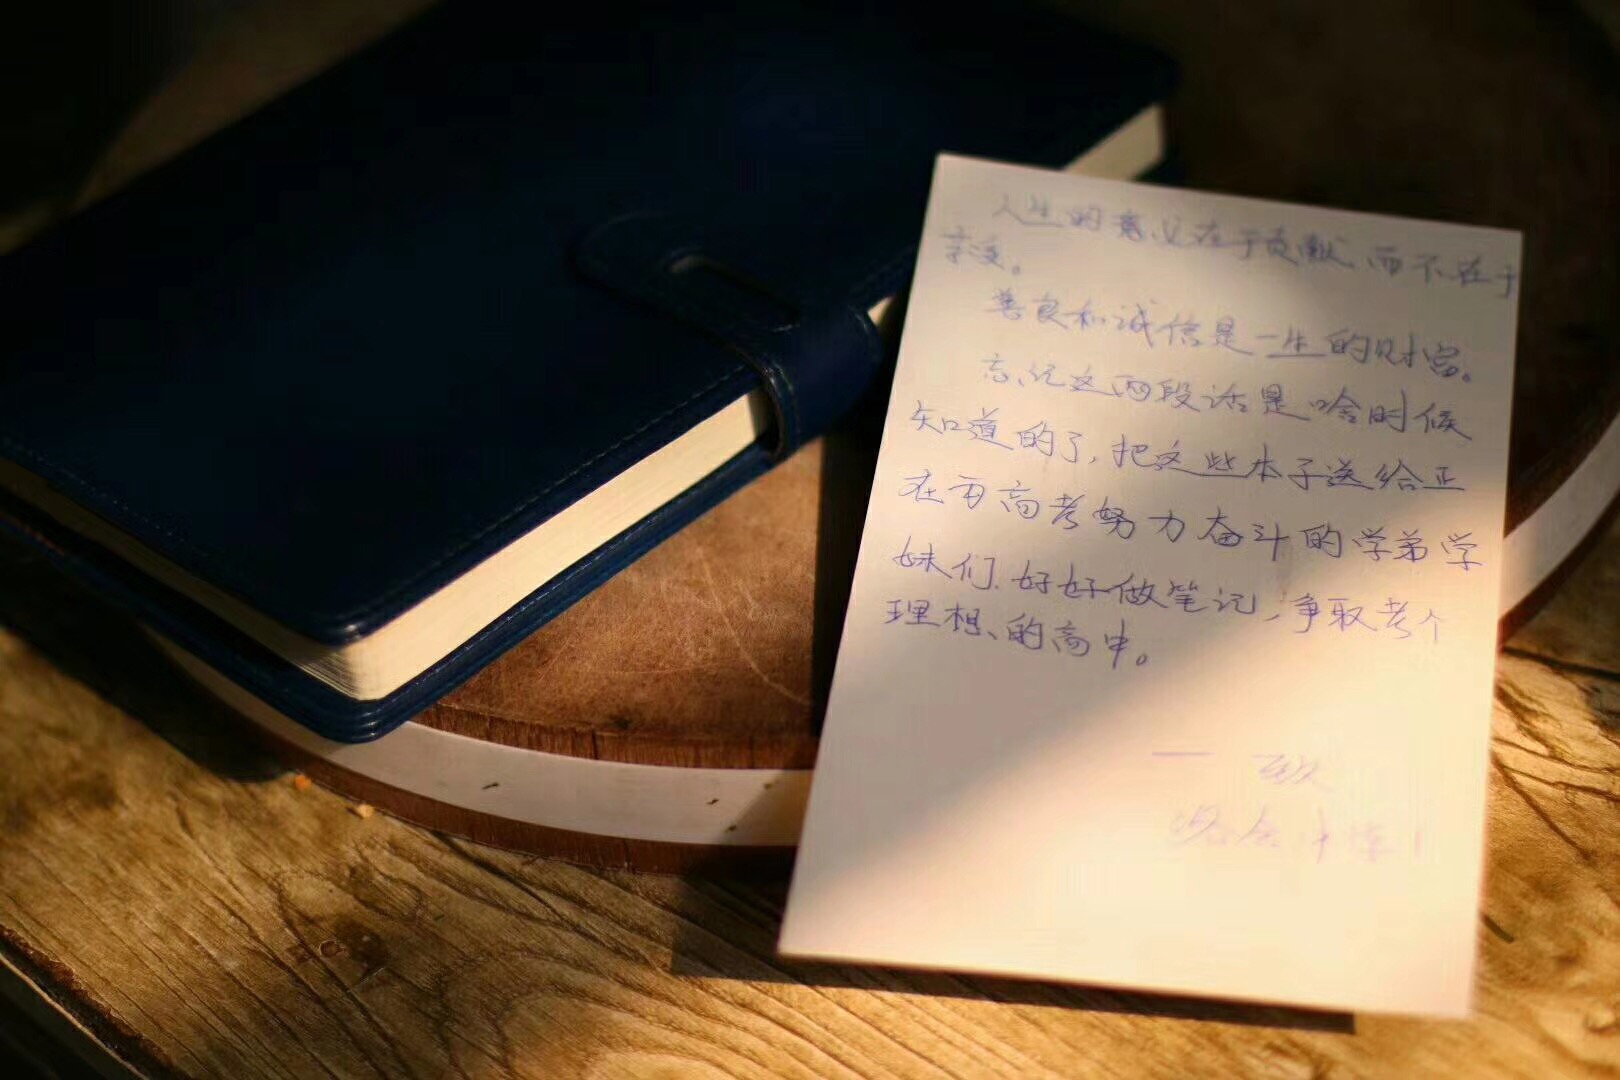 人生的意义在于贡献而不在于
享受。
善良和诚信是一生的财富。
忘记这两段话是啥时候
知道的了，把这些本子送给正
在为高考努力奋斗的学弟学
妹们，好好做笔记，争取考个
理想的高中。